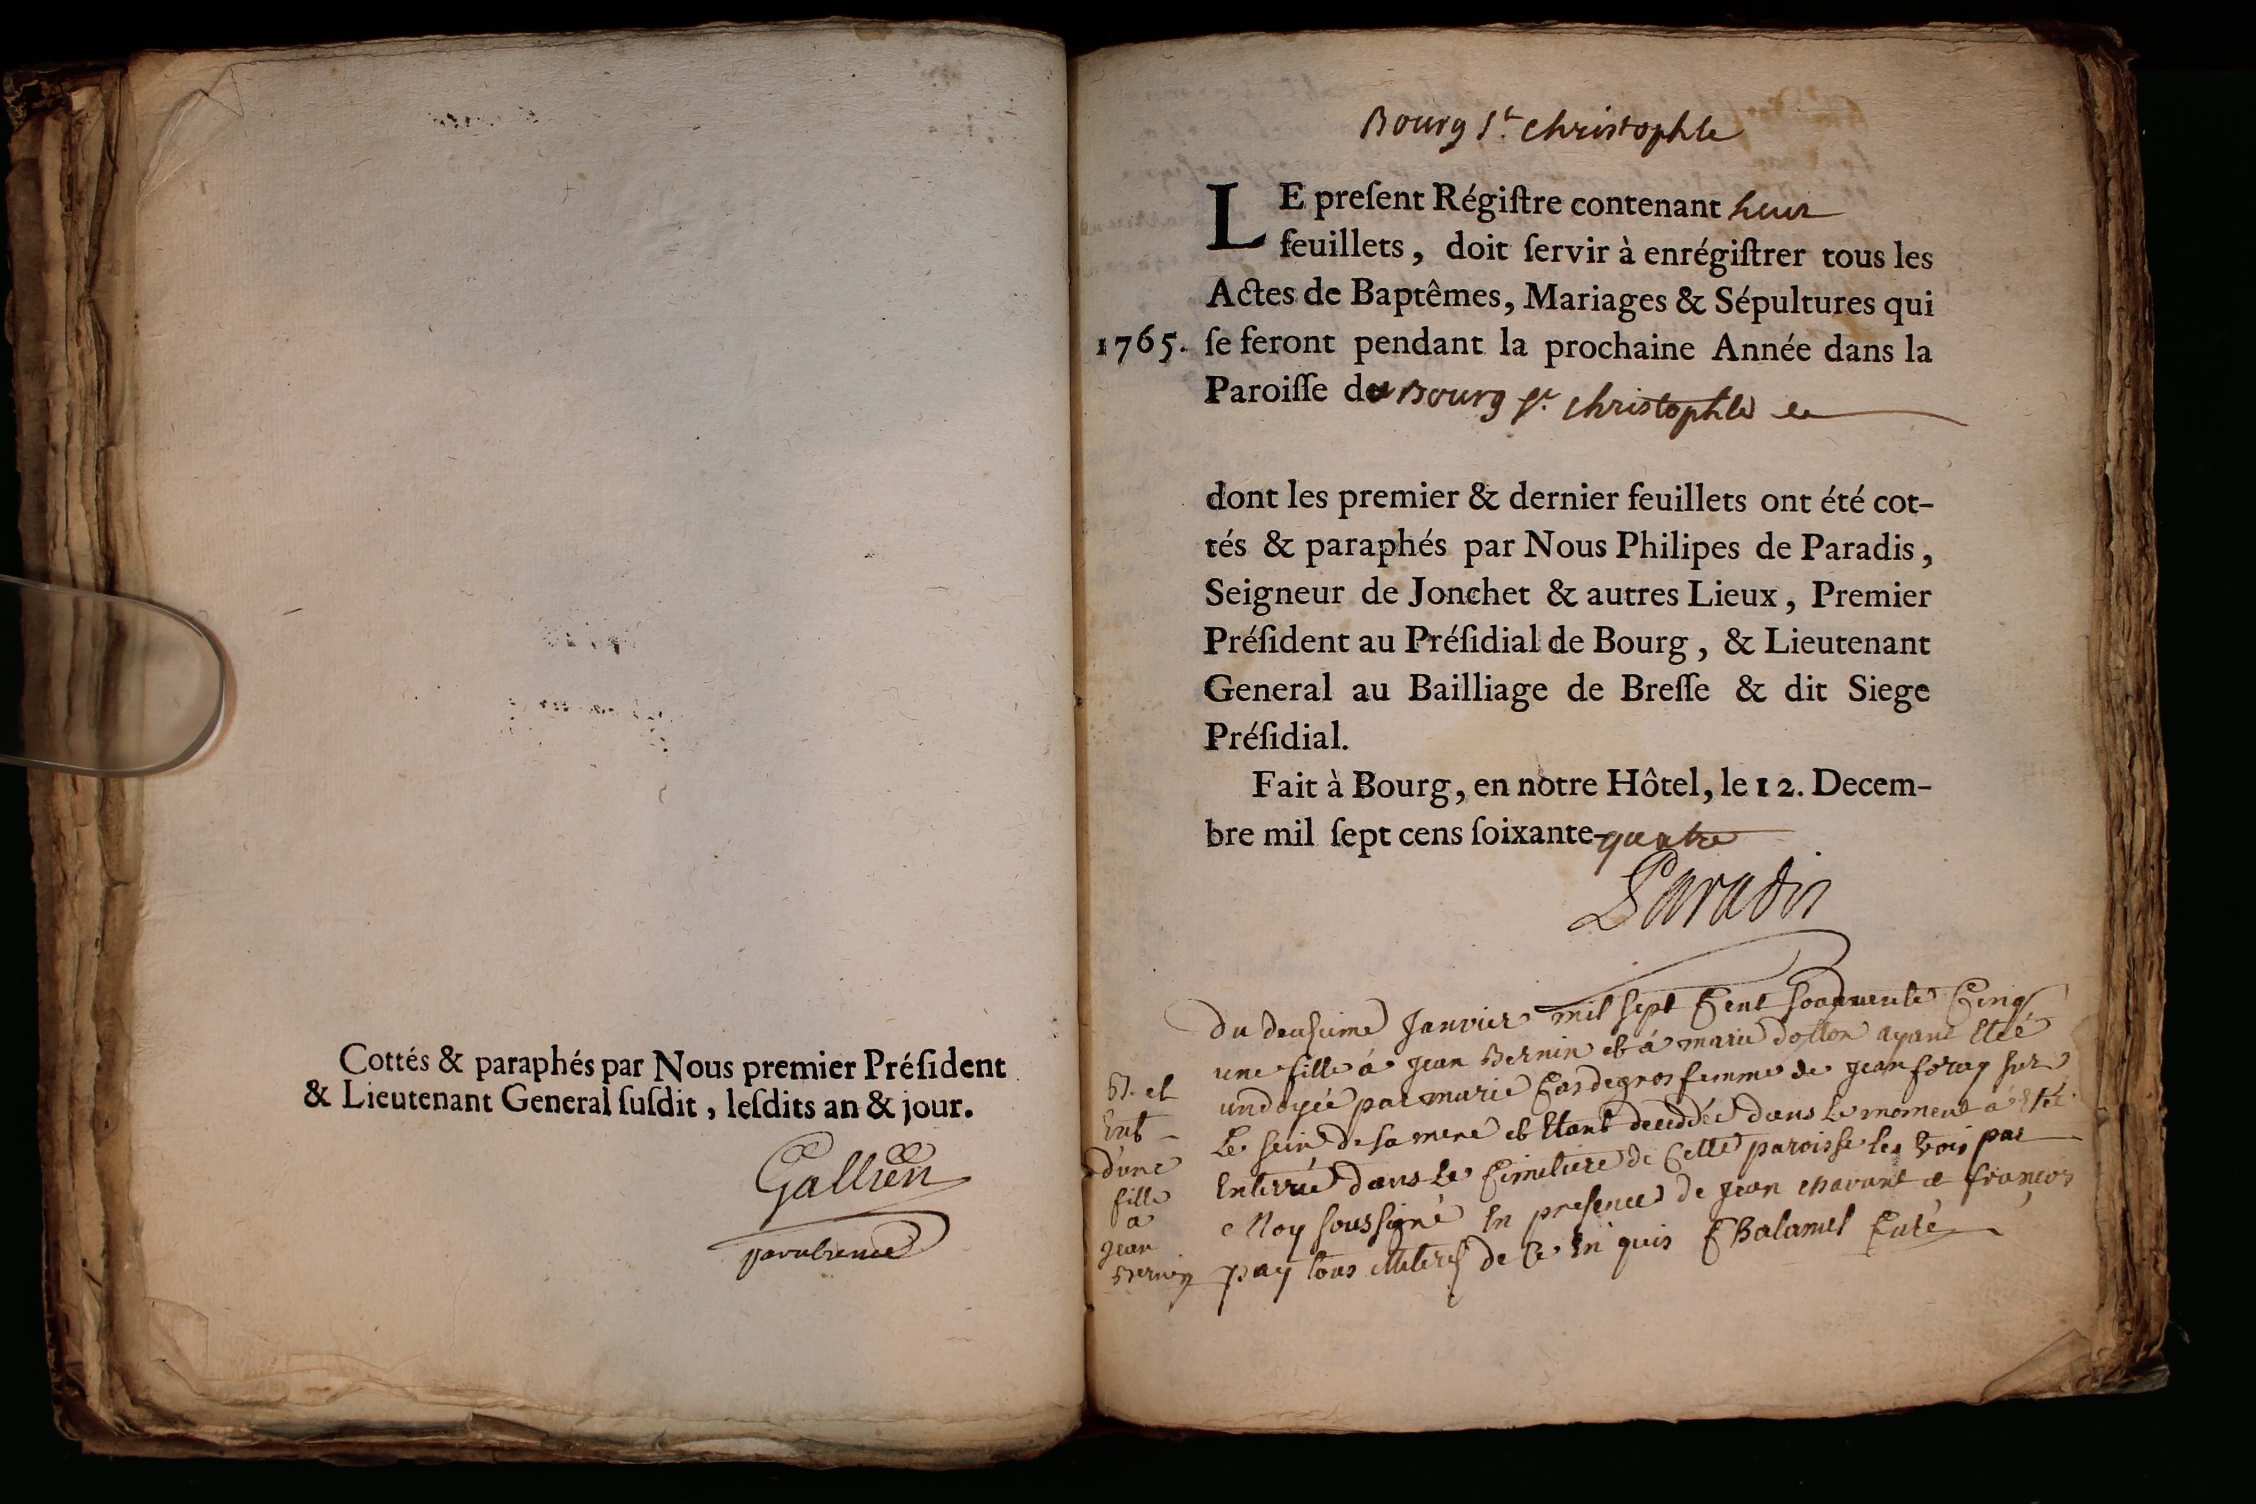 Cottés & paraphés par Nous premier Préſident
& Lieutenant General ſuſdit, leſdits an & jour.
Gallien
par absence
Bourg St. christophle
LE preſent Régiſtre contenant huit
feuillets, doit ſervir à enrégiſtrer tous les
Actes de Baptêmes, Mariages & Sépultures qui
1765. ſe feront pendant la prochaine Année dans la
Paroiſſe de Bourg St. christophle
dont les premier & dernier feuillets ont été cot-
tés & paraphés par Nous Philipes de Paradis,
Seigneur de Jonchet & autres Lieux, Premier
Préſident au Préſidial de Bourg, & Lieutenant
General au Bailliage de Breſſe & dit Siege
Préſidial.
Fait à Bourg, en notre Hôtel, le 12. Decem-
bre mil ſept cens ſoixante-quatre
Paradis
B. et
Ent
d'une
fille
a
jean
Bernin
du deusieme Janvier mil sept Cent soixante Cinq
une fille á jean Bernin et á marie ayant Eteé
undoyée par marie femme de jean foray sur
Le sein de sa mere et Etant decedée dans le moment á été
Enterrée dans Le Cimetiere de Cette paroisse par
Moy soussigné En presence de jean chavant et françois
pay de Ce En quis Chalamel Curé